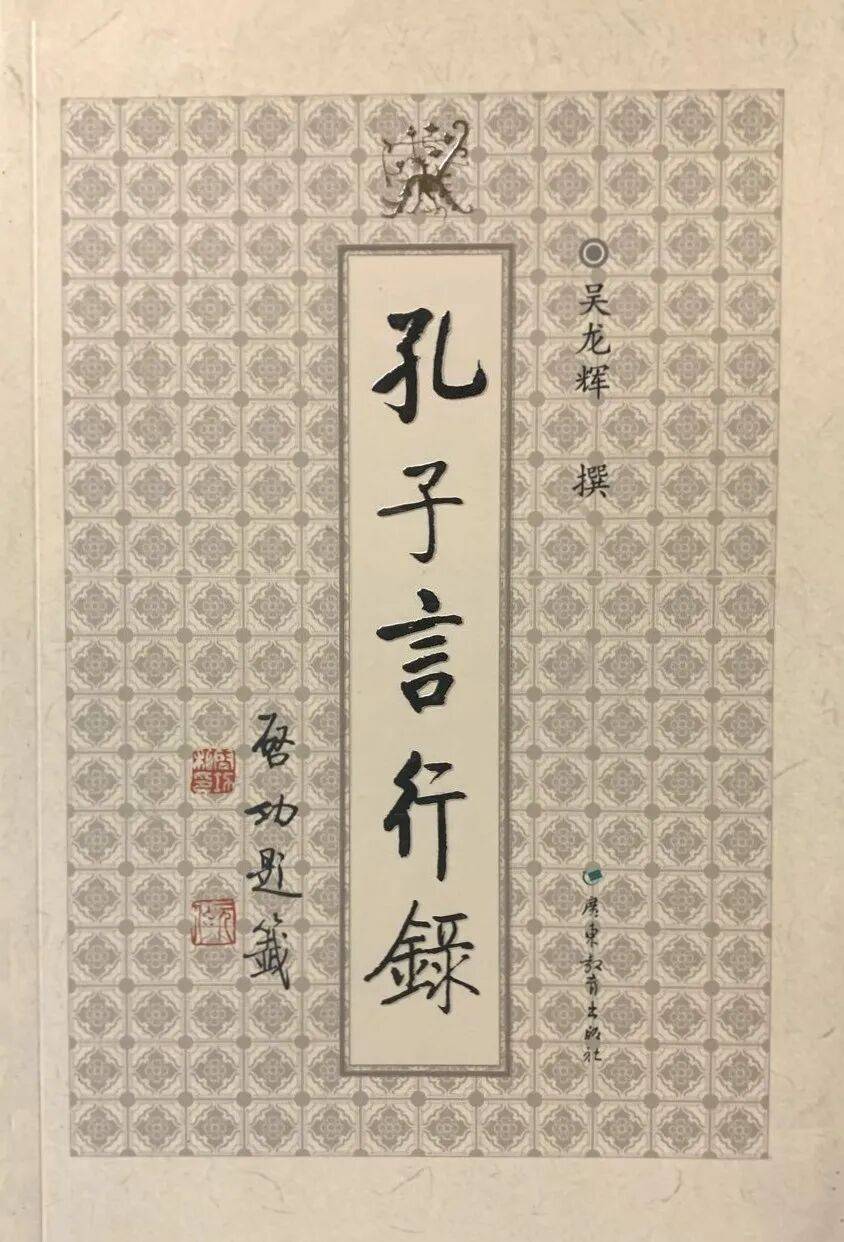 吴龙辉 撰
孔子言行錄
啓功題籤
廣東教育出版社